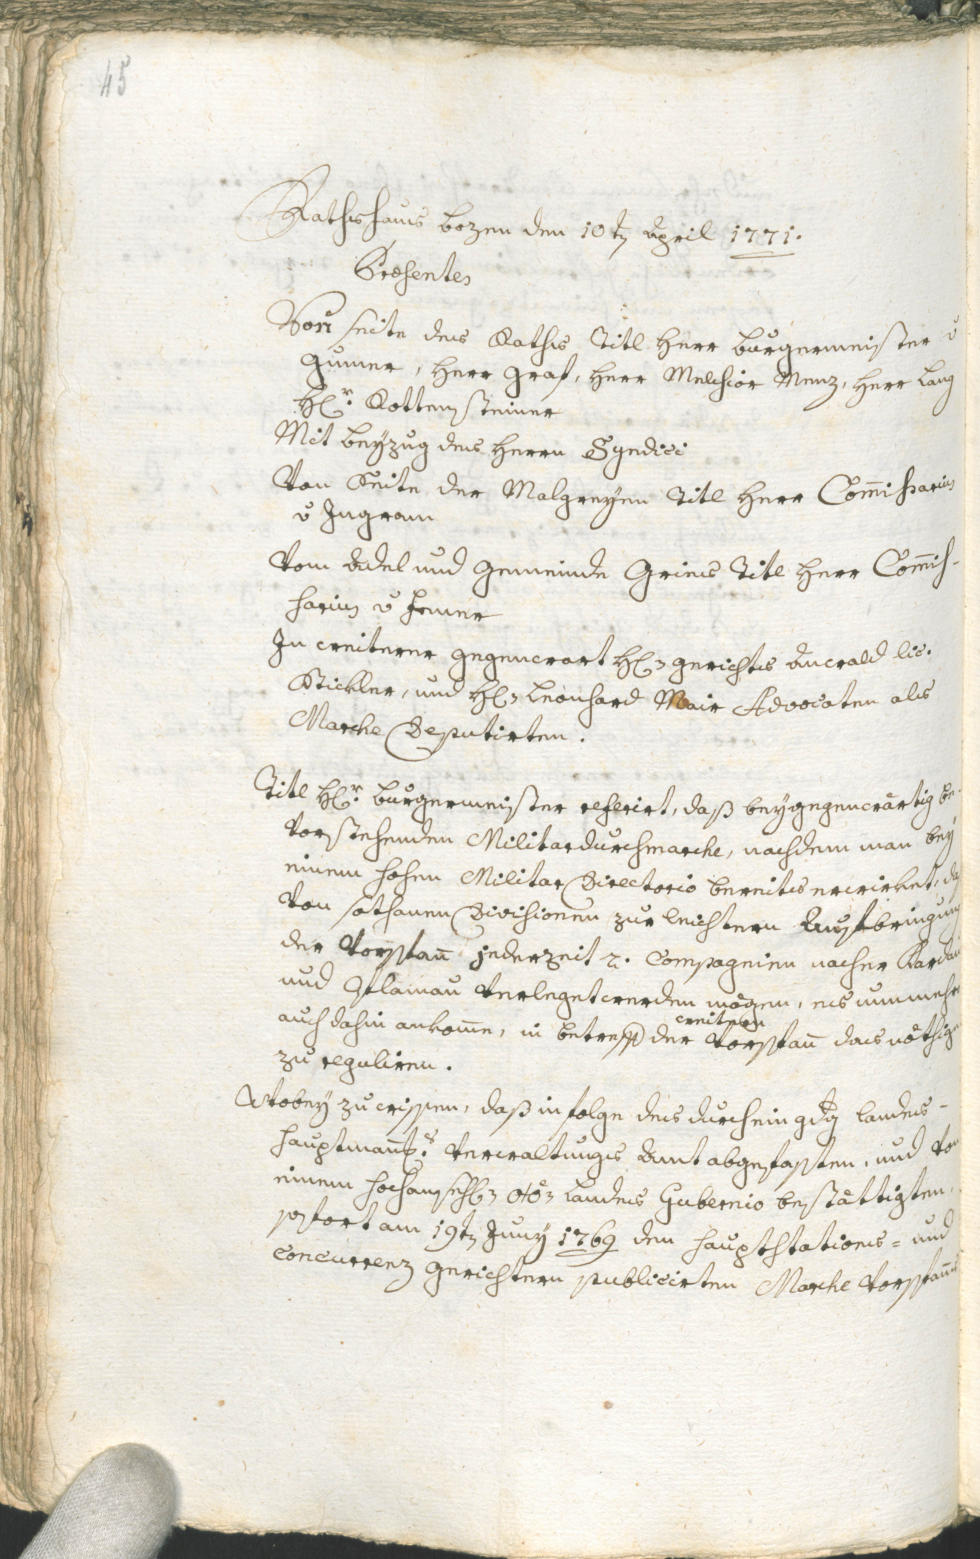 45
Rathshaus Bozen den 10t. April 1771.
Præsentes
Von seite des Raths Titl Herr Burgermeister v
Gumer, Herr Graf, Herr Melchior Menz, Herr Lang
H: Kottensteiner
Mit beyzug des Herrn Syndici
Von Seite der Malgreyen Titl Herr Com̄issarius
v Ingram
Vom Adel und Gemeinde Gries Titl Herr Com̄is-
sarius v
In weiterer gegenwart H: gerichts Anwald lic.
Stickler, und H: Leonhard Mair Advocaten als
Marche Deputirten.
Titl H: Burgermeister referirt, daß bey gegenwärtig be-
vorstehenden Militardurchmarche, nachdem man bey
einem hohen Militar Directorio bereits erwirket, daß
von sothanen Divisionen zur leichtern Aufbringung
der Vorspañ jederzeit 2. Compagnien nacher Kardaun
und Blumau verleget werden mögen, es nunmehr
auch dahin ankom̄e, in betreff der weitern Vorspañ das nöthige
zu reguliren.
Wobey zu wissen, daß in folge des durch ein gdg Landes-
hauptmañ: Verwaltungs Amt abgefassten, und von
einem hochansehl: OÖ: Landes Gubernio bestättigten,
sofort am 19t. Juny 1769 den Haupthstations- und
Concurrenz gerichtern publicirten Marche Vorspañs